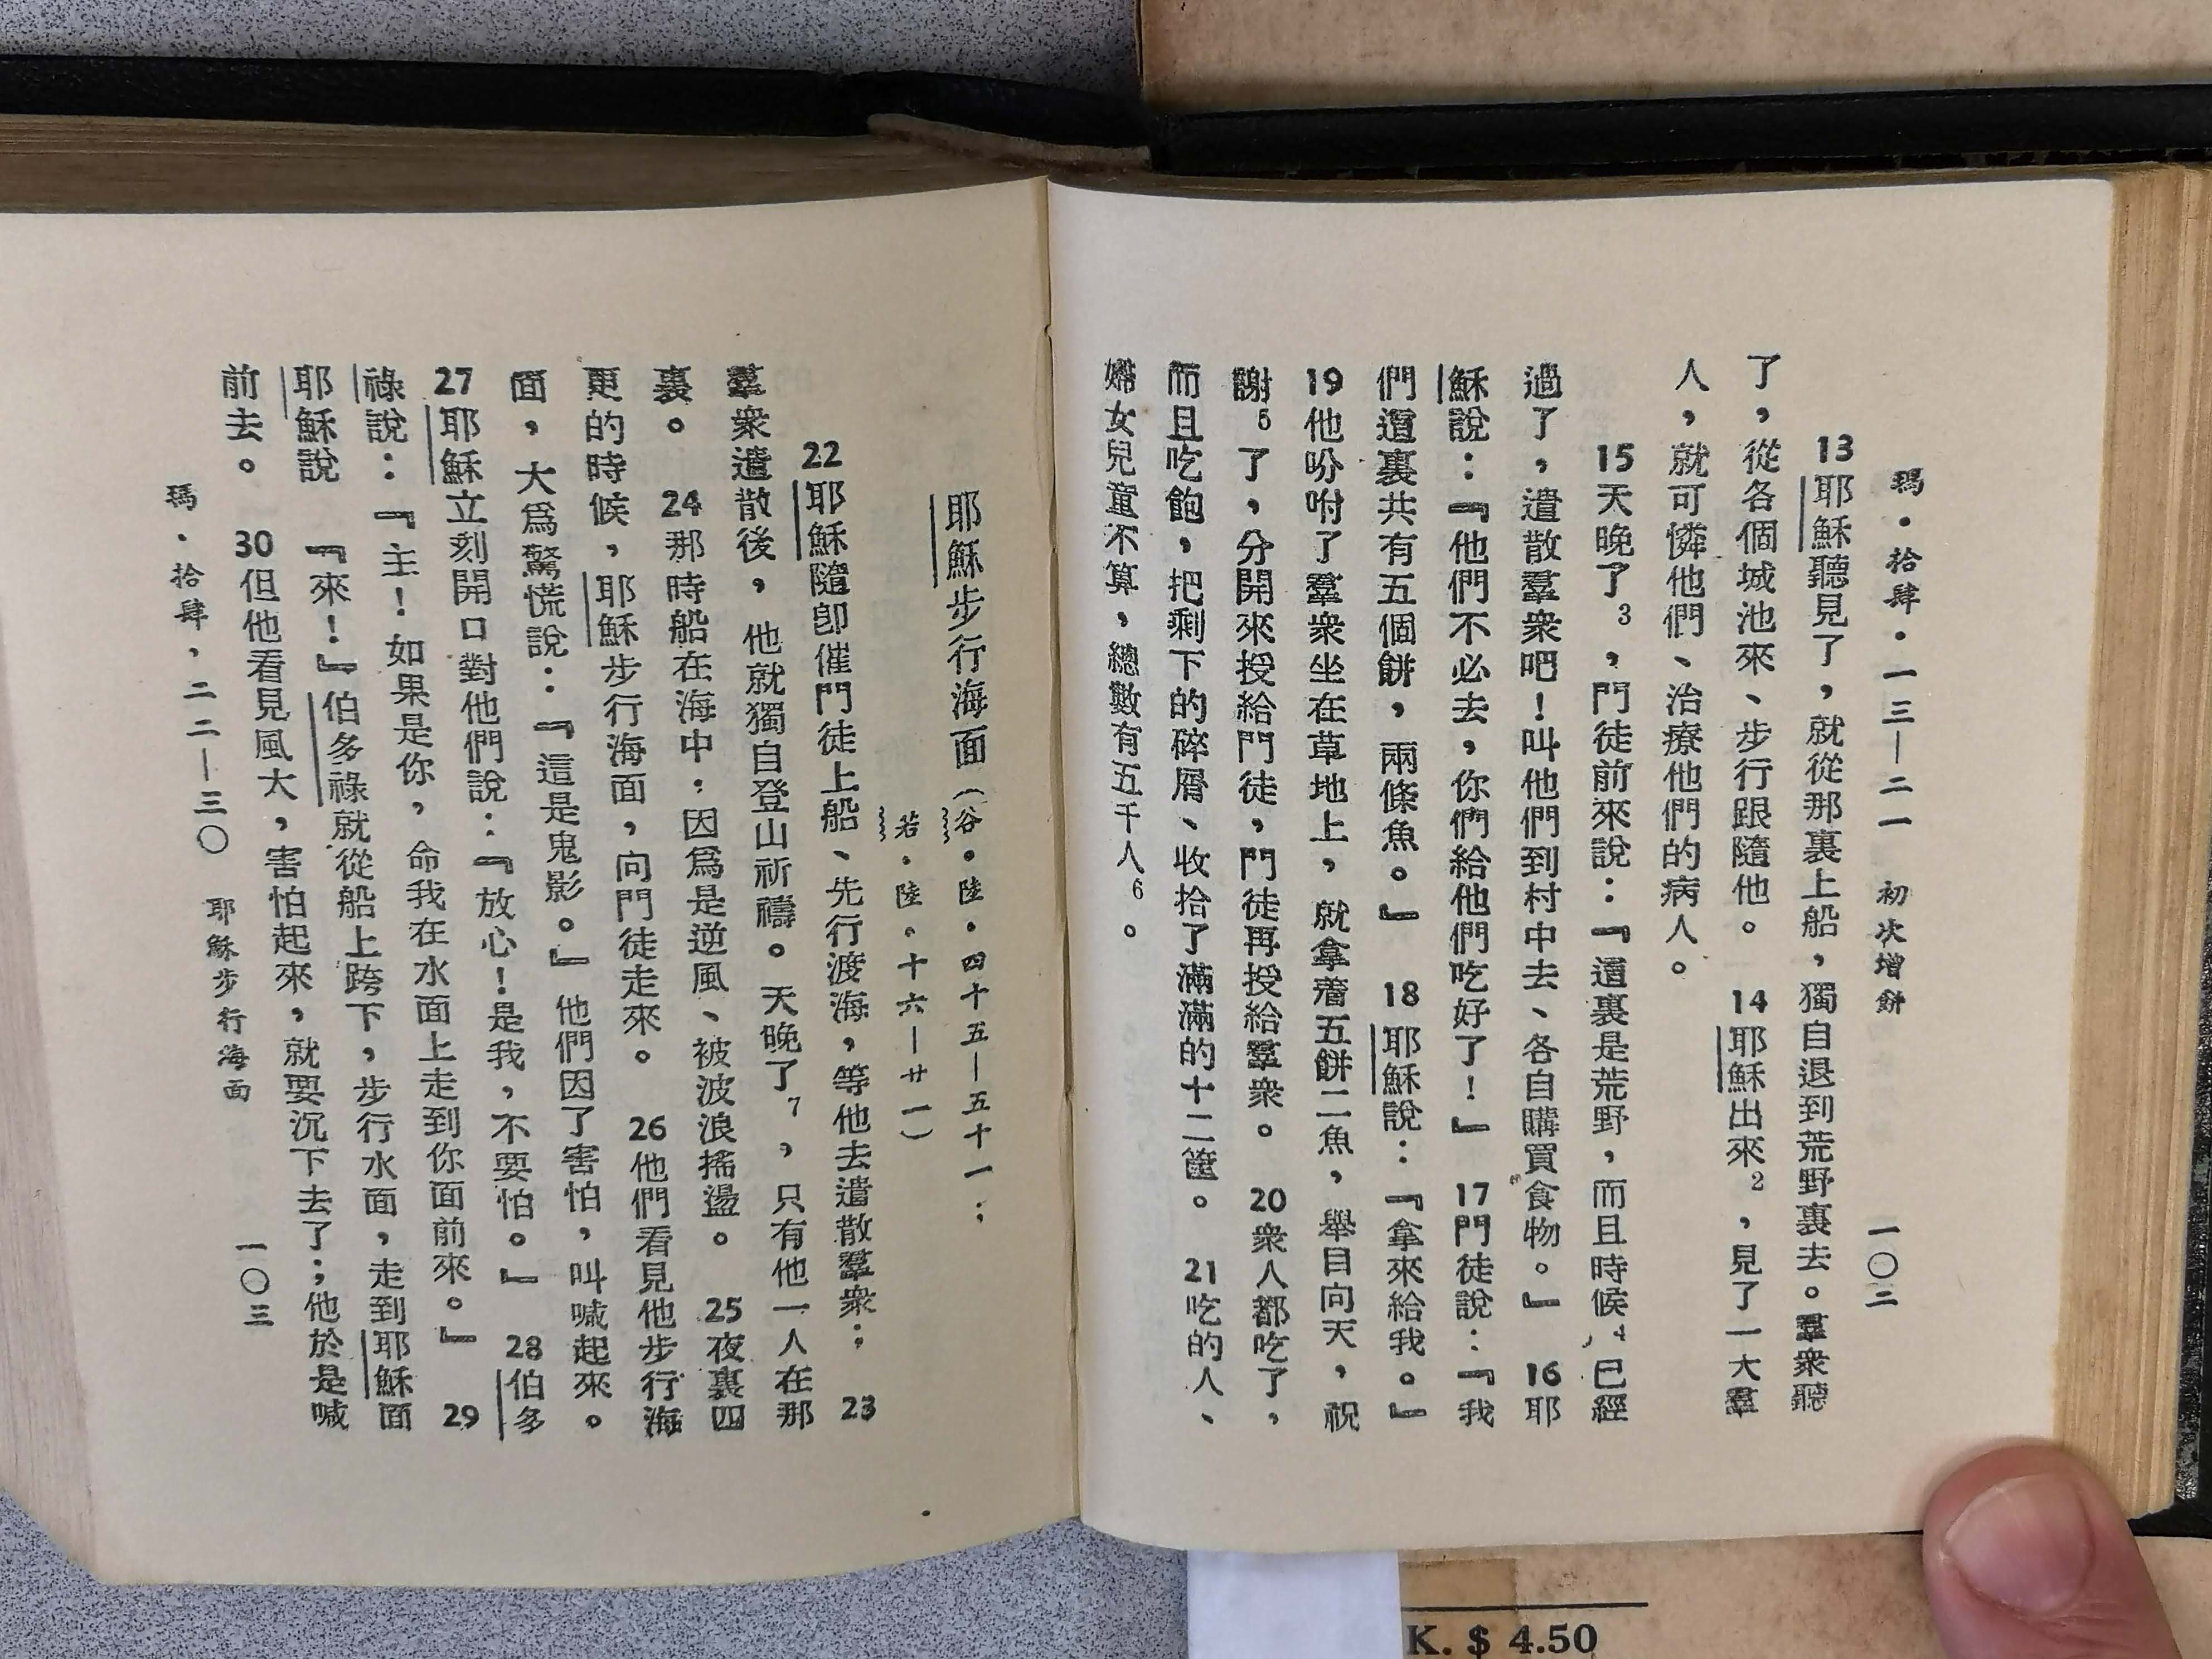 瑪・拾肆・一三—二一 初次增餅 一〇二
13耶穌聽見了，就從那裏上船，獨自退到荒野裏去。羣衆聽
了，從各個城池來、步行跟隨他。 14耶穌出來2，見了一大羣
人，就可憐他們、治療他們的病人。
15天晚了3，門徒前來說：『這裏是荒野，而且時候4已經
過了，遣散羣衆吧！叫他們到村中去、各自購買食物。』 16耶
穌說：『他們不必去，你們給他們吃好了！』 17門徒說：『我
們這裏共有五個餅，兩條魚。』 18耶穌說：『拿來給我。』
19他吩咐了羣衆坐在草地上，就拿着五餅二魚，舉目向天，祝
謝5了，分開來授給門徒，門徒再授給羣衆。 20衆人都吃了，
而且吃飽，把剩下的碎屑、收拾了滿滿的十二筐。 21吃的人、
婦女兒童不算，總數有五千人6。
耶穌步行海面（谷・陸・四十五—五十一；
若・陸。十六—廿一）
22耶穌隨卽催門徒上船、先行渡海，等他去遣散羣衆； 23
羣衆遣散後，他就獨自登山祈禱。天晚了7，只有他一人在那
裏。 24那時船在海中；因爲是逆風、被波浪搖盪。 25夜裏四
更的時候，耶穌步行海面，向門徒走來。 26他們看見他步行海
面，大爲驚慌說：『這是鬼影。』他們因了害怕，叫喊起來。
27耶穌立刻開口對他們說：『放心！是我，不要怕。』 28伯多
祿說：『主！如果是你，命我在水面上走到你面前來。』 29
耶穌說 『來！』伯多祿就從船上跨下，步行水面，走到耶穌面
前去。 30但他看見風大，害怕起來，就要沉下去了；他於是喊
瑪・拾肆，二二—三〇 耶穌步行海面 一〇三
K. $ 4.50